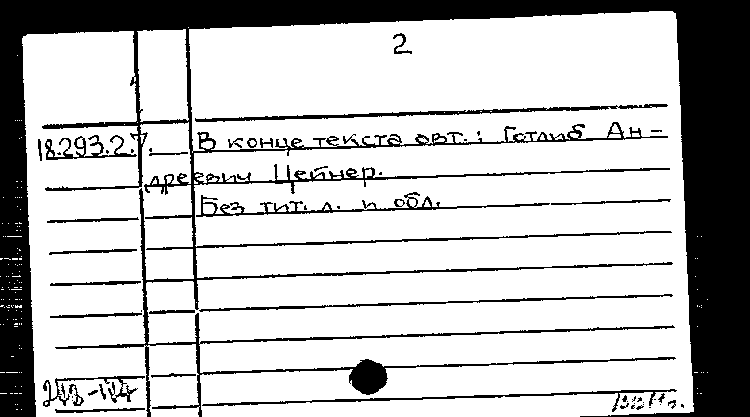 2
18.293.2.7. В конце текста авт.: Готлиб Ан-
дреевич Цейнер.
Без тит. л. и обл.